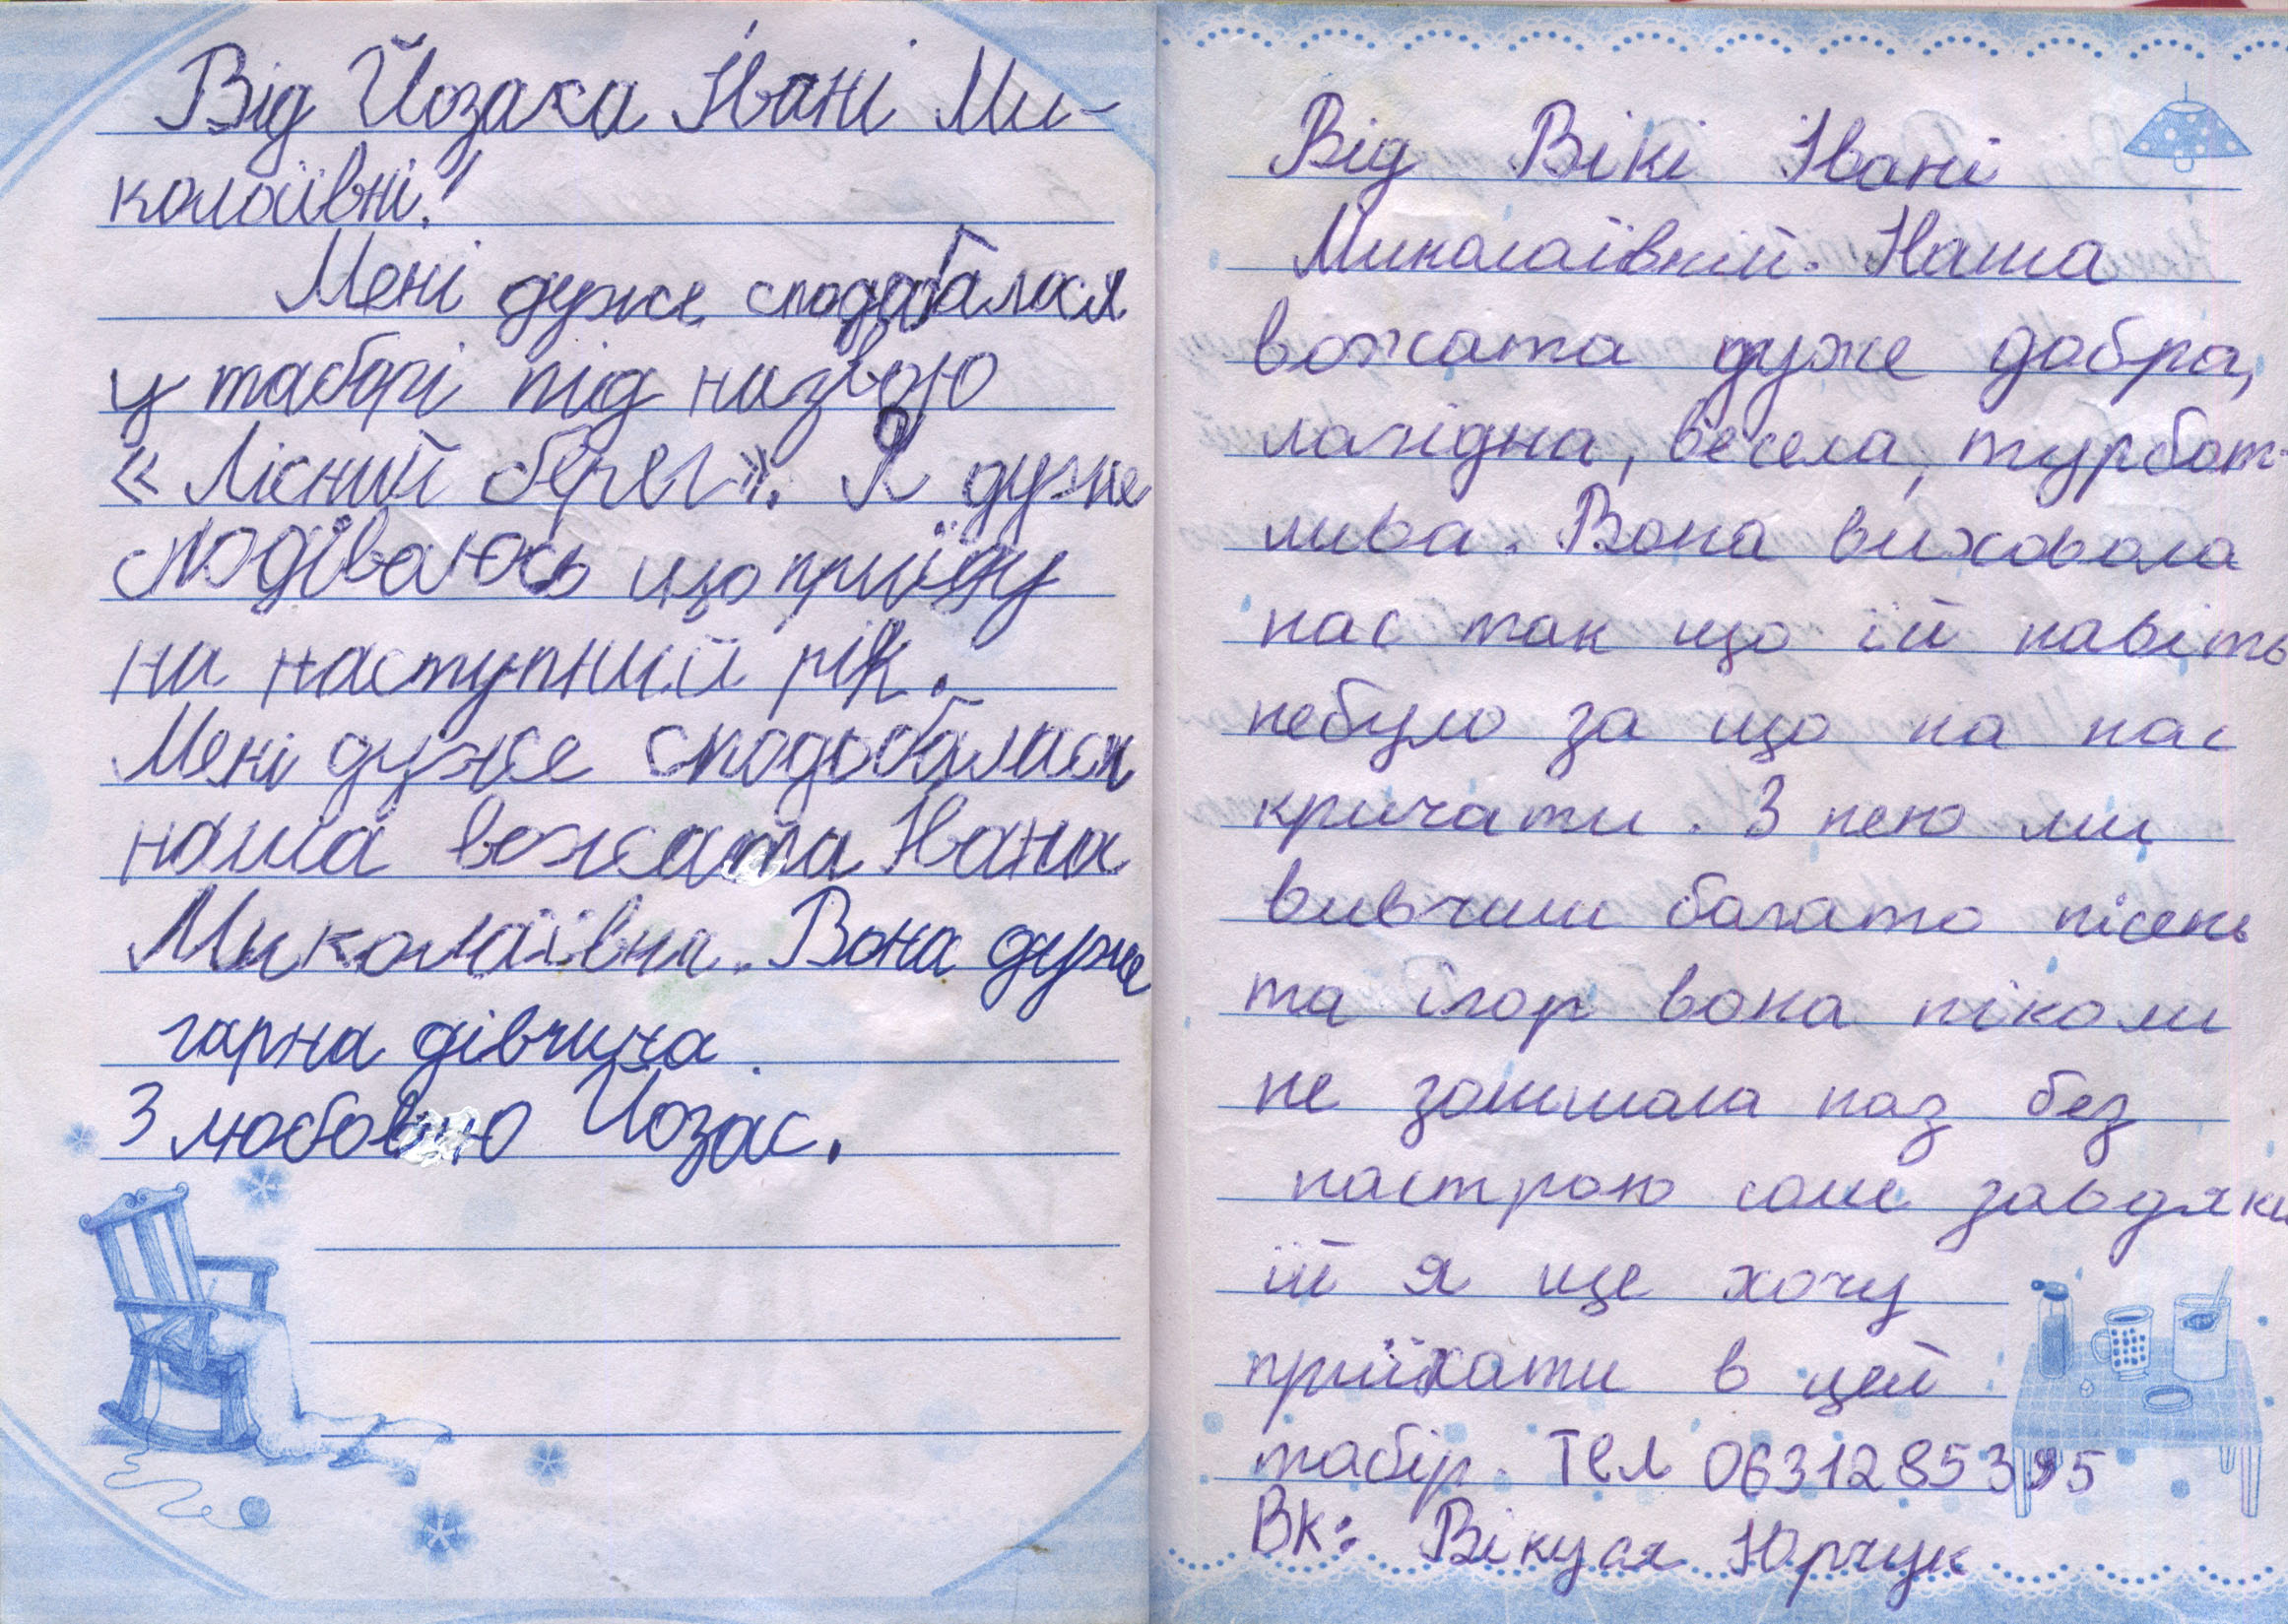 Від Йозаса Івані Ми-
колаївні!
Мені дуже сподобалося
у таборі під назвою
«Лісний берег». Я дуже
сподіваюсь що приїду
на наступний рік.
Мені дуже сподобалася
наша вожата Івана
Миколаївна. Вона дуже
гарна дівчина.
З любовю Йозас.
Від Вікі Івані
Миколаївній. Наша
вожата дуже добра,
лагідна, весела, турбот-
лива. Вона виховала
нас так що їй навіть
небуло за що на нас
кричати. З нею ми
вивчили багато пісень
та ігор вона ніколи
не залишала наз без
настрою саме завдяки
їй я ще хочу
приїхати в цей
табір. Тел
ВК: Вікуся Юрчук